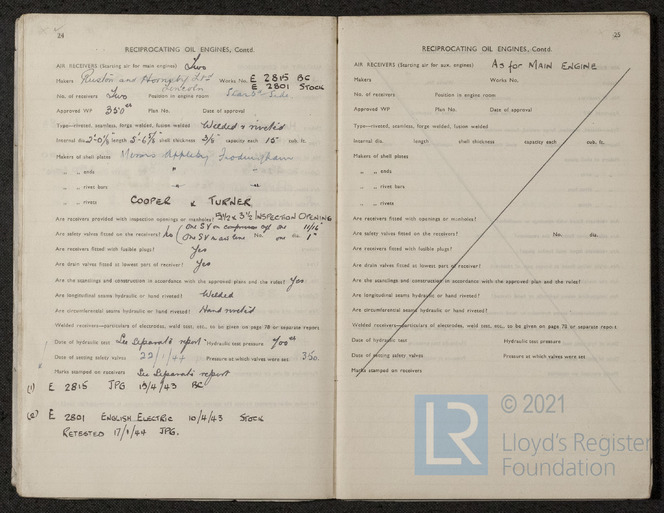 24
RECIPROCATING OIL ENGINES, Contd.
AIR RECEIVERS (Starting air for main engines) Two
Makers Ruston and Hornsby Ltd Works No. E 2815 BC
Lincoln E 2801 STOCK
No. of receivers Two Position in engine room Starbd Side.
Approved WP 350 Plan No. Date of approval
Type—riveted, seamless, forge welded, fusion welded Welded & riveted
Internal dia. 2'-0 length 5'-6 shell thickness 3/8" capacity each 15 cub. ft.
Makers of shell plates Messrs Appleby Frodingham
„ „ ends "
„ „ rivet bars " "
„ „ rivets COOPER & TURNER
Are receivers provided with inspection openings or manholes? 5 1/2 X 3 1/2 INSPECTION OPENING
Are safety valves fitted on the receivers? No (One SV on compressor off one 11/16"
(One SV on air line No. one dia. 1"
Are receivers fitted with fusible plugs? Yes
Are drain valves fitted at lowest part of receiver? Yes
Are the scantlings and construction in accordance with the approved plan and the rules? Yes
Are longitudinal seams hydraulic or hand riveted? Welded
Are circumferential seams hydraulic or hand riveted? Hand riveted
Welded receivers—particulars of electrodes, weld test, etc., to be given on page 78 or separate report
Date of hydraulic test See Separate report Hydraulic test pressure 700
Date of setting safety valves 22/1/44 Pressure at which valves were set 350.
Marks stamped on receivers See Separate report
(1) E 2815 JPG 13/4/43 BC
(2) E 2801 ENGLISH ELECTRIC 10/4/43 STOCK
RETESTED 17/1/44 JPG.
25
RECIPROCATING OIL ENGINES, Contd.
AIR RECEIVERS (Starting air for aux. engines) AS FOR MAIN ENGINE
Makers Works No.
No. of receivers Position in engine room
Approved WP Plan No. Date of approval
Type—riveted, seamless, forge welded, fusion welded
Internal dia. length shell thickness capacity each cub. ft.
Makers of shell plates
„ „ ends
„ „ rivet bars
„ „ rivets
Are receivers fitted with openings or manholes?
Are safety valves fitted on the receivers? No. dia.
Are receivers fitted with fusible plugs?
Are drain valves fitted at lowest part of receiver?
Are the scantlings and construction in accordance with the approved plan and the rules?
Are longitudinal seams hydraulic or hand riveted?
Are circumferential seams hydraulic or hand riveted?
Welded receivers—particulars of electrodes, weld test, etc., to be given on page 78 or separate report
Date of hydraulic test Hydraulic test pressure
Date of setting safety valves Pressure at which valves were set
Marks stamped on receivers
LR
© 2021
Lloyd's Register
Foundation